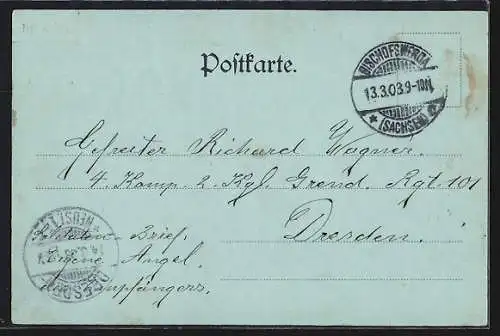 Postkarte.
BISCHOFSWERDA
13.3.03. 9-10V.
* (SACHSEN)
Gefreiter Richard Wagner.
4. Komp. 2. Kgl. Grend. Rgt. 101
Dresden.
Soldaten-Brief.
Eigene Angel.
des Empfängers.
DRESDEN
NEUST.